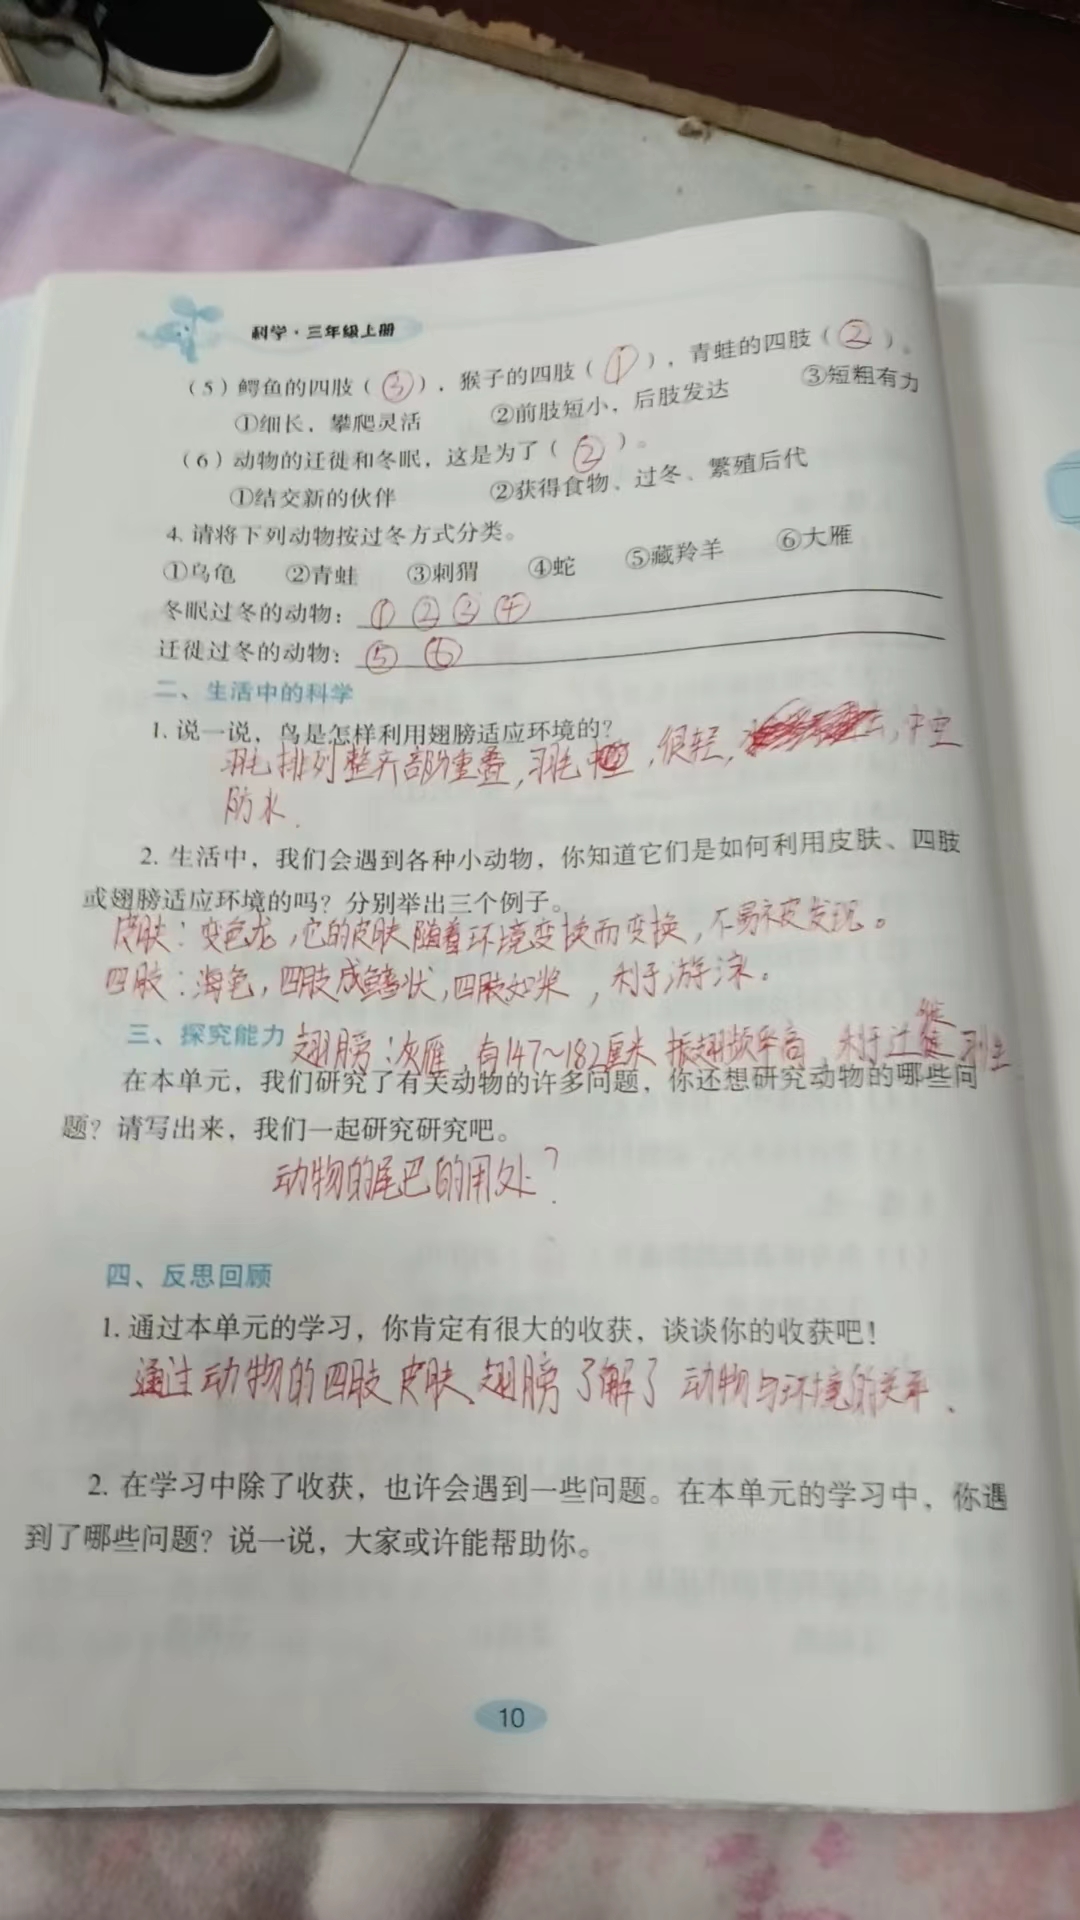 科学·三年级上册
（5）鳄鱼的四肢（③），猴子的四肢（①），青蛙的四肢（②）。
①细长，攀爬灵活 ②前肢短小，后肢发达 ③短粗有力
（6）动物的迁徙和冬眠，这是为了（②）。
①结交新的伙伴 ②获得食物、过冬、繁殖后代
4. 请将下列动物按过冬方式分类。
①乌龟 ②青蛙 ③刺猬 ④蛇 ⑤藏羚羊 ⑥大雁
冬眠过冬的动物：①②③④
迁徙过冬的动物：⑤⑥
二、生活中的科学
1. 说一说，鸟是怎样利用翅膀适应环境的？
羽毛排列整齐部分重叠，羽毛，很轻，中空
防水.
2. 生活中，我们会遇到各种小动物，你知道它们是如何利用皮肤、四肢
或翅膀适应环境的吗？分别举出三个例子。
皮肤：变色龙，它的皮肤随着环境变换而变换，不易被发现。
四肢：海龟，四肢成鳍状，四肢如桨，利于游泳。
三、探究能力
翅膀：大雁，有147~182厘米 振翅频率高，利于迁徙
在本单元，我们研究了有关动物的许多问题，你还想研究动物的哪些问
题？请写出来，我们一起研究研究吧。
动物的尾巴的用处？
四、反思回顾
1. 通过本单元的学习，你肯定有很大的收获，谈谈你的收获吧！
通过动物的四肢、皮肤、翅膀了解了动物与环境的关系.
2. 在学习中除了收获，也许会遇到一些问题。在本单元的学习中，你遇
到了哪些问题？说一说，大家或许能帮助你。
10